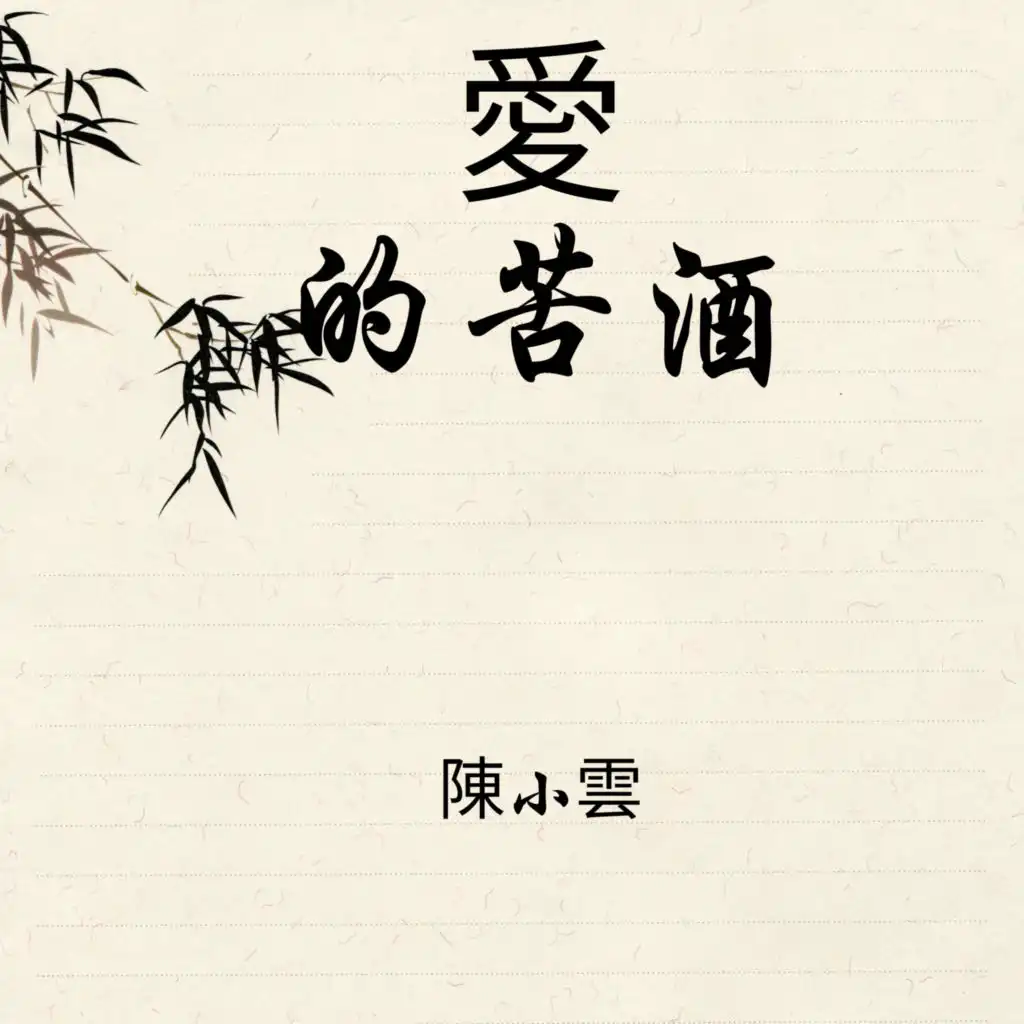 愛
的苦酒
陳小雲